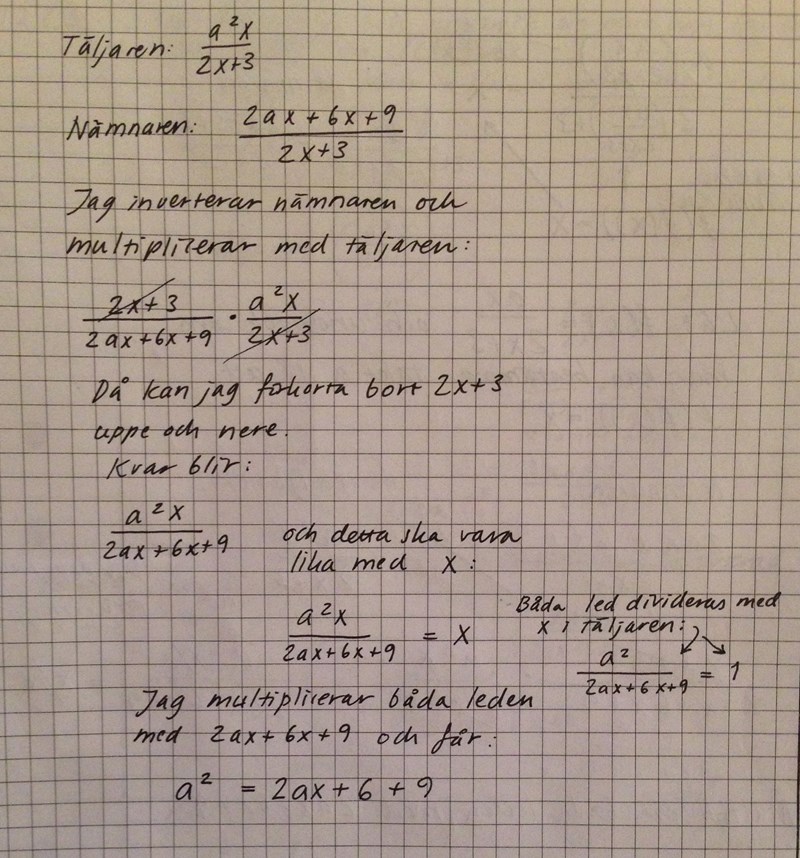 Täljaren: a²x / 2x+3
Nämnaren: 2ax+6x+9 / 2x+3
Jag inverterar nämnaren och
multiplicerar med täljaren:
2x+3 / 2ax+6x+9 · a²x / 2x+3
Då kan jag förkorta bort 2x+3
uppe och nere.
Kvar blir:
a²x / 2ax+6x+9 och detta ska vara
lika med x:
a²x / 2ax+6x+9 = x
Båda led divideras med
x i täljaren:
a² / 2ax+6x+9 = 1
Jag multiplicerar båda leden
med 2ax+6x+9 och får:
a² = 2ax+6+9